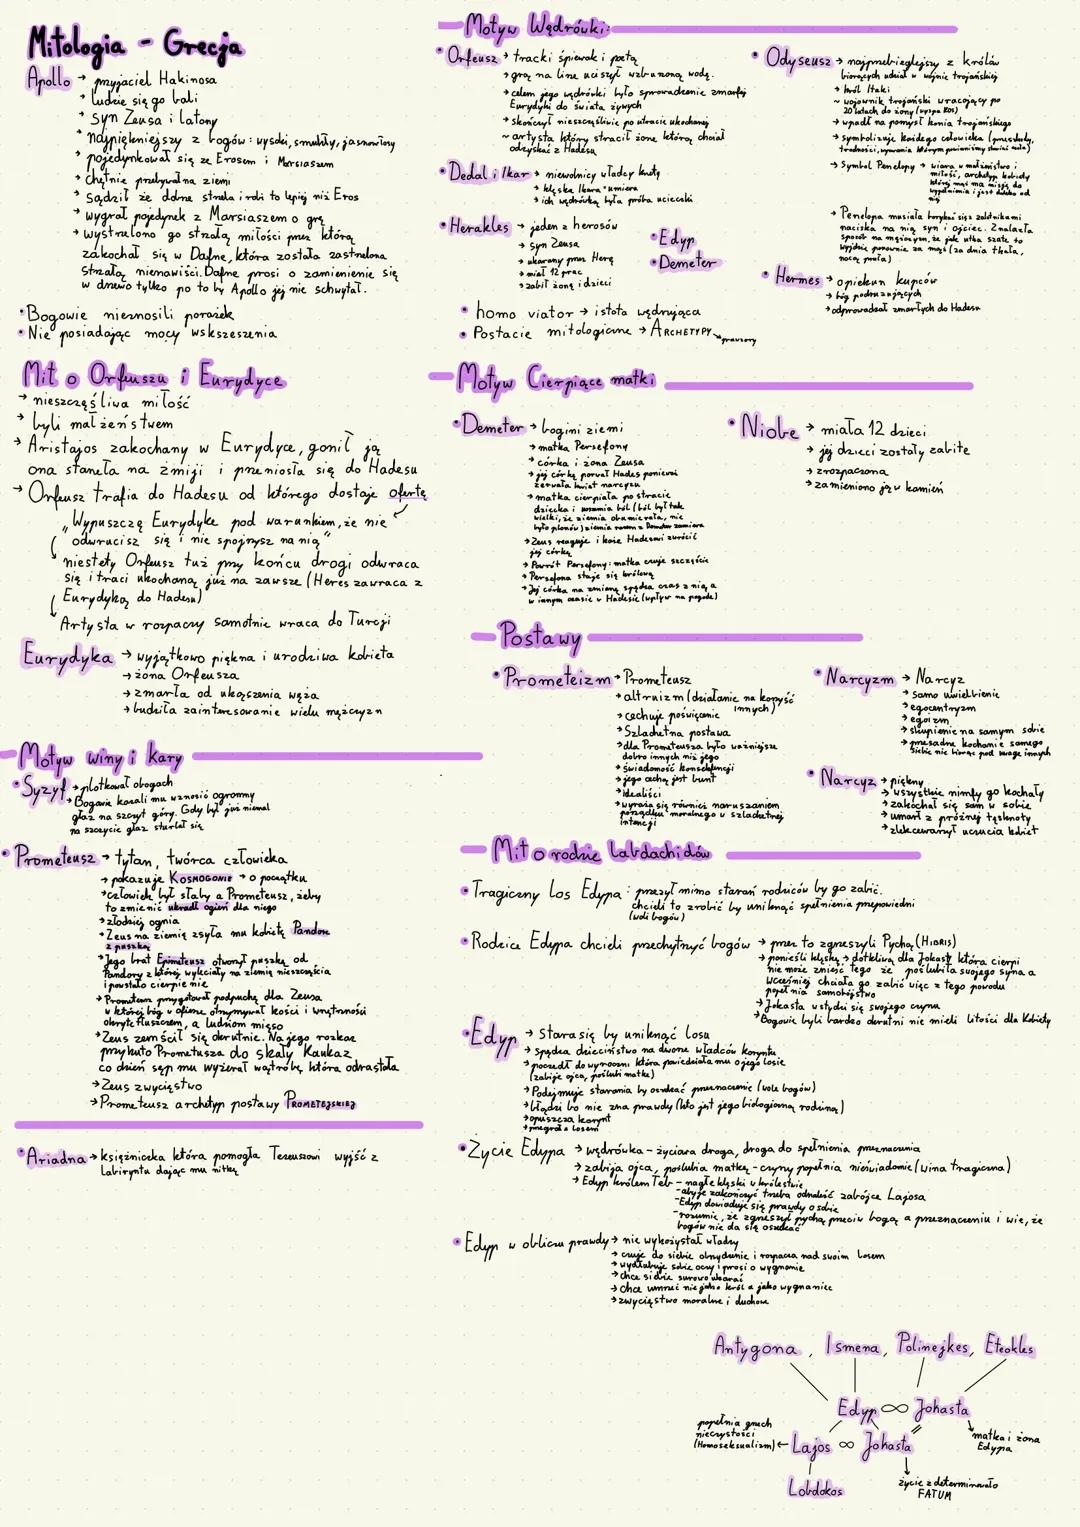 Mitologia - Grecja
Apollo → przyjaciel Hakinosa
→ ludzie się go bali
→ syn Zeusa i Latony
→ najpiękniejszy z bogów: wysoki, smukły, jasnowłosy
→ pojedynkował się ze Erosem i Marsiaszem
→ chętnie przebywał na ziemi
→ sądził że dobrze strzela i robi to lepiej niż Eros
→ wygrał pojedynek z Marsiaszem o grę
→ wystrzelono go strzałą miłości przez którą
zakochał się w Dafne, która została zastrzelona
strzałą nienawiści. Dafne prosi o zamienienie się
w drzewo tylko po to by Apollo jej nie schwytał.
• Bogowie nieznosili porażek
• Nie posiadając mocy wskrzeszenia
Mit o Orfeuszu i Eurydyce
→ nieszczęśliwa miłość
→ byli małżeństwem
→ Aristajos zakochany w Eurydyce, gonił ją
ona staneła na żmiji i przeniosła się do Hadesu
→ Orfeusz trafia do Hadesu od którego dostaje ofertę
„Wypuszczę Eurydykę pod warunkiem, że nie
odwrucisz się i nie spojrzysz na nią"
niestety Orfeusz tuż przy końcu drogi odwraca
się i traci ukochaną już na zawsze (Heres zawraca z
Eurydyką do Hadesu)
Artysta w rozpaczy samotnie wraca do Turcji
Eurydyka → wyjątkowo piękna i urodziwa kobieta
→ żona Orfeusza
→ zmarła od ukąszenia węża
→ budziła zainteresowanie wielu mężczyzn
Motyw winy i kary
• Syzyf → plotkował o bogach
→ Bogowie kazali mu wznosić ogromny
głaz na szczyt góry. Gdy był już niemal
na szczycie głaz sturlał się
• Prometeusz → tytan, twórca człowieka
→ pokazuje KOSMOGONIE → o początku
→ człowiek był słaby a Prometeusz, żeby
to zmienić ukradł ogień dla niego
→ złodziej ognia
→ Zeus na ziemię zsyła mu kobietę Pandorę
z puszką
→ Jego brat Epimeteusz otworzył puszkę od
Pandory z której wyleciały na ziemię nieszczęścia
i powstało cierpienie
→ Prometeusz przygotował podpuchę dla Zeusa
w której bóg w ofierze otrzymywał kości i wnętrzności
okryte tłuszczem, a ludziom mięso
→ Zeus zemścił się okrutnie. Na jego rozkaz
przykuto Prometusza do skały Kaukaz
co dzień sęp mu wyżerał wątrobę, która odrastała
→ Zeus zwycięstwo
→ Prometeusz archetyp postawy PROMETEJSKIEJ
• Ariadna → księżniczka która pomogła Tezeuszowi wyjść z
Labiryntu dając mu nitkę
Motyw Wędrówki:
• Orfeusz → tracki śpiewak i poeta
→ grą na lirze uciszył wzburzoną wodę.
→ celem jego wędrówki było sprowadzenie zmarłej
Eurydyki do świata żywych
→ skończył nieszczęśliwie po utracie ukochanej
~ artysta, który stracił żonę którą chciał
odzyskać z Hadesu
• Dedal i Ikar → niewolnicy władcy krety
→ klęska Ikara - umiera
→ ich wędrówką była próba ucieczki
• Herakles → jeden z herosów
→ syn Zeusa
→ ukarany przez Herę
→ miał 12 prac
→ zabił żonę i dzieci
• Edyp
• Demeter
• homo viator → istota wędrująca
• Postacie mitologiczne → ARCHETYPY
→ prawzory
• Odyseusz → najprzebieglejszy z królów
biorących udział w wojnie trojańskiej
→ król Itaki
~ wojownik trojański wracający po
20 latach do żony (wyspa KOS)
→ wpadł na pomysł konia trojańskiego
→ symbolizuje każdego człowieka (przeszkody,
trudności, wyzwania którym powinniśmy stawiać czoła)
→ Symbol Penelopy → wiara w małżeństwo i
miłość, archetyp kobiety
której mąż ma misję do
wypełnienia i jest daleko od
niej
→ Penelopa musiała borykać się z zalotnikami
naciska na nią syn i ojciec. Znalazła
sposób na mężczyzn, że jak utka szatę to
wyjdzie ponownie za mąż (za dnia tkała,
nocą pruła)
• Hermes → opiekun kupców
→ bóg podróżujących
→ odprowadzał zmarłych do Hadesu
Motyw Cierpiące matki
• Demeter → bogini ziemi
→ matka Persefony
→ córka i żona Zeusa
→ jej córkę porwał Hades ponieważ
zerwała kwiat narcyzu
→ matka cierpiała po stracie
dziecka i wzmaga ból (ból był tak
wielki, że ziemia obumierała, nie
było plonów) ziemia razem z Demeter zamiera
→ Zeus reaguje i każe Hadesowi zwrócić
jej córkę
→ Powrót Persefony: matka czuje szczęście
→ Persefona staje się królową
→ Jej córka na zmianę spędza czas z nią, a
w innym czasie w Hadesie (wpływ na pogodę)
• Niobe → miała 12 dzieci
→ jej dzieci zostały zabite
→ zrozpaczona
→ zamieniono ją w kamień
Postawy
• Prometeizm → Prometeusz
→ altruizm (działanie na korzyść
innych)
→ cechuje poświęcenie
→ Szlachetna postawa
→ dla Prometeusza było ważniejsze
dobro innych niż jego
→ świadomość konsekwencji
→ jego cechą jest bunt
→ Idealiści
→ wyraża się również naruszaniem
porządku moralnego w szlachetnej
intencji
• Narcyzm → Narcyz
→ samo uwielbienie
→ egocentryzm
→ egoizm
→ skupienie na samym sobie
→ przesadne kochanie samego
siebie nie biorąc pod uwagę innych
• Narcyz → piękny
→ wszystkie nimfy go kochały
→ zakochał się sam w sobie
→ umarł z próżnej tęsknoty
→ zlekceważył uczucia kobiet
Mit o rodzie Labdachidów
• Tragiczny los Edypa: przeżył mimo starań rodziców by go zabić.
chcieli to zrobić by uniknąć spełnienia przepowiedni
(woli bogów)
• Rodzice Edypa chcieli przechytrzyć bogów → przez to zgrzeszyli Pychą (HIBRIS)
→ ponieśli klęskę → dotkliwą dla Jokasty która cierpi
nie może znieść tego że poślubiła swojego syna a
wcześniej chciała go zabić więc z tego powodu
popełnia samobójstwo
→ Jokasta wstydzi się swojego czynu
→ Bogowie byli bardzo okrutni nie mieli litości dla kobiety
• Edyp → stara się by uniknąć losu
→ spędza dzieciństwo na dworze władców koryntu
→ poszedł do wyroczni która powiedziała mu o jego losie
(zabije ojca, poślubi matkę)
→ Podejmuje starania by oszukać przeznaczenie (wolę bogów)
→ błądzi bo nie zna prawdy (kto jest jego biologiczną rodziną)
→ opuszcza korynt
→ przegrał z losem
• Życie Edypa → wędrówka - życiowa droga, droga do spełnienia przeznaczenia
→ zabija ojca, poślubia matkę - czyny popełnia nieświadomie (wina tragiczna)
→ Edyp królem Teb - nagłe klęski w królestwie
- aby je zakończyć trzeba odnaleźć zabójcę Lajosa
- Edyp dowiaduje się prawdy o sobie
- rozumie, że zgrzeszył pychą przeciw bogą a przeznaczeniu i wie, że
bogów nie da się oszukać
• Edyp w obliczu prawdy → nie wykożystał władzy
→ czuje do siebie obrzydzenie i rozpacza nad swoim losem
→ wydłubuje sobie oczy i prosi o wygnanie
→ chce siebie surowo ukarać
→ chce umrzeć nie jako król a jako wygnaniec
→ zwycięstwo moralne i duchowe
Antygona, Ismena, Polinejkes, Eteokles
Edyp ∞ Jokasta
matka i żona
Edypa
popełnia grzech
nieczystości
(Homoseksualizm) ← Lajos ∞ Jokasta
życie zdeterminowało
FATUM
Lobdokos